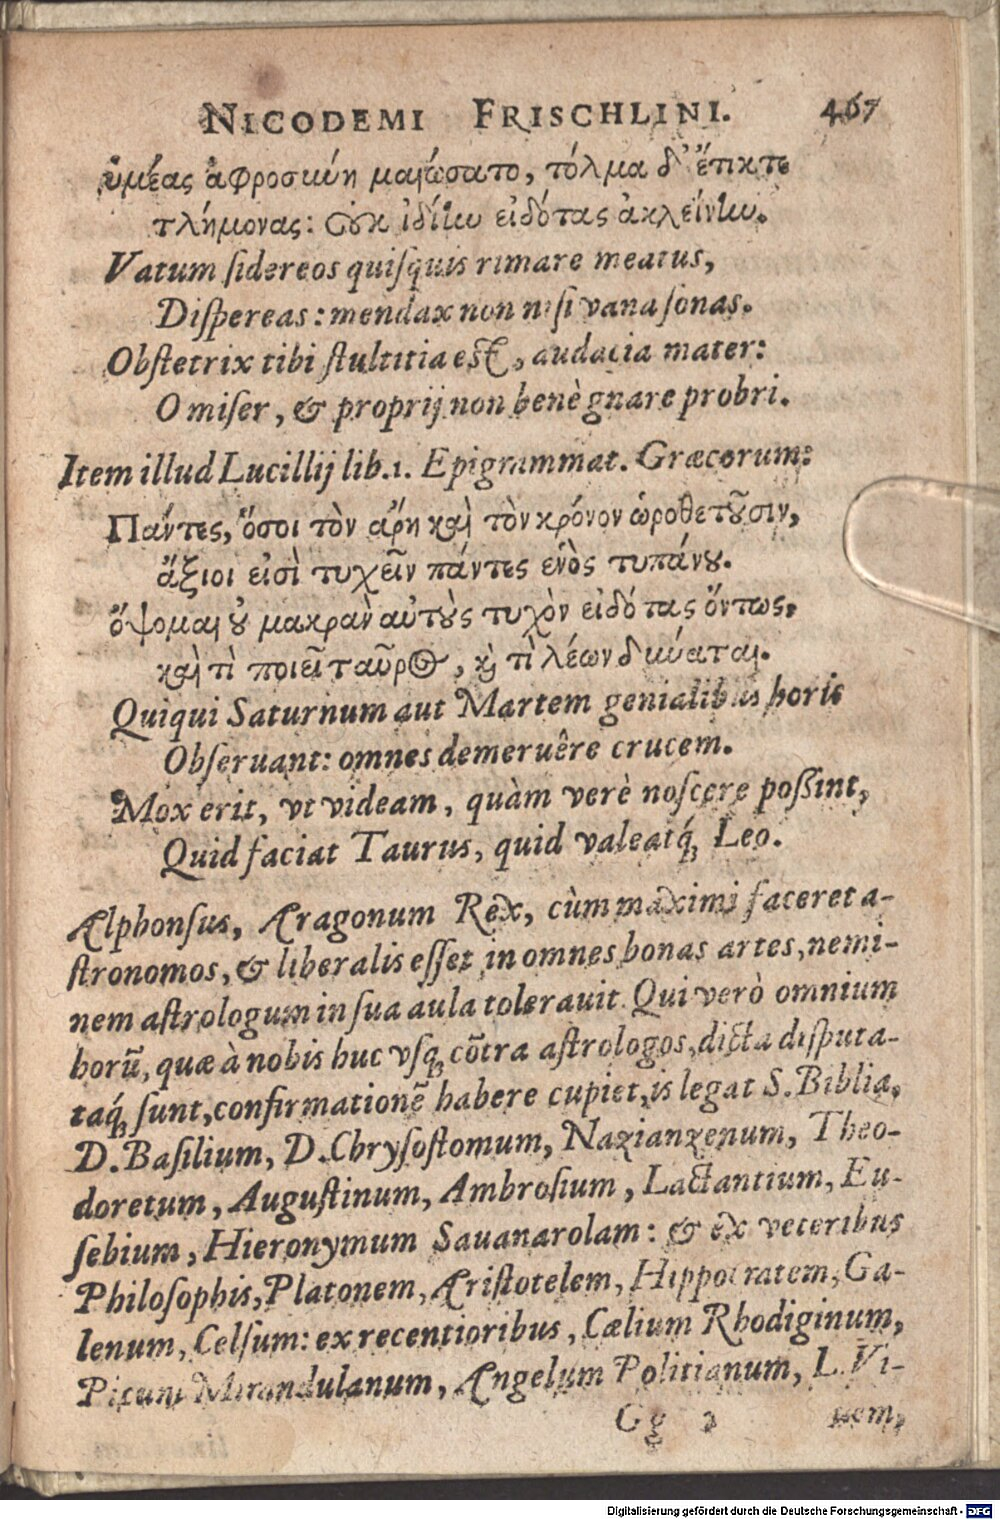 NICODEMI FRISCHLINI. 467
ὑμέας ἀφροσύνη μαιώσατο, τόλμα δ' ἔτικτε
τλήμονας: οὐκ ἰδίην εἰδότας ἀκλείην.
Vatum sidereos quisquis rimare meatus,
Dispereas: mendax non nisi vana sonas.
Obstetrix tibi stultitia est, audacia mater:
O miser, & proprij non benè gnare probri.
Item illud Lucillij lib.1. Epigrammat. Græcorum:
Πάντες, ὅσοι τὸν ἄρη καὶ τὸν κρόνον ὡροθετοῦσιν,
ἄξιοι εἰσὶ τυχεῖν πάντες ἑνὸς τυπάνου.
ὄψομαι οὐ μακρὰν αὐτοὺς τυχὸν εἰδότας ὄντως,
καὶ τὶ ποιεῖ ταῦρος, κὶ τὶ λέων δύναται.
Quiqui Saturnum aut Martem genialibus horis
Obseruant: omnes demeruêre crucem.
Mox erit, vt videam, quàm verè noscere poßint,
Quid faciat Taurus, quid valeatq́; Leo.
Alphonsus, Aragonum Rex, cùm maximi faceret a-
stronomos, & liberalis esset in omnes bonas artes, nemi-
nem astrologum in sua aula tolerauit. Qui verò omnium
horũ, quæ à nobis huc vsq; cõtra astrologos, dicta disputa-
taq́; sunt, confirmationẽ habere cupiet, is legat S. Biblia,
D. Basilium, D. Chrysostomum, Nazianzenum, Theo-
doretum, Augustinum, Ambrosium, Lactantium, Eu-
sebium, Hieronymum Sauanarolam: & ex veteribus
Philosophis, Platonem, Aristotelem, Hippocratem, Ga-
lenum, Celsum: ex recentioribus, Cælium Rhodiginum,
Picum Mirandulanum, Angelum Politianum, L. Vi-
Gg 2 uem,
Digitalisierung gefördert durch die Deutsche Forschungsgemeinschaft - DFG